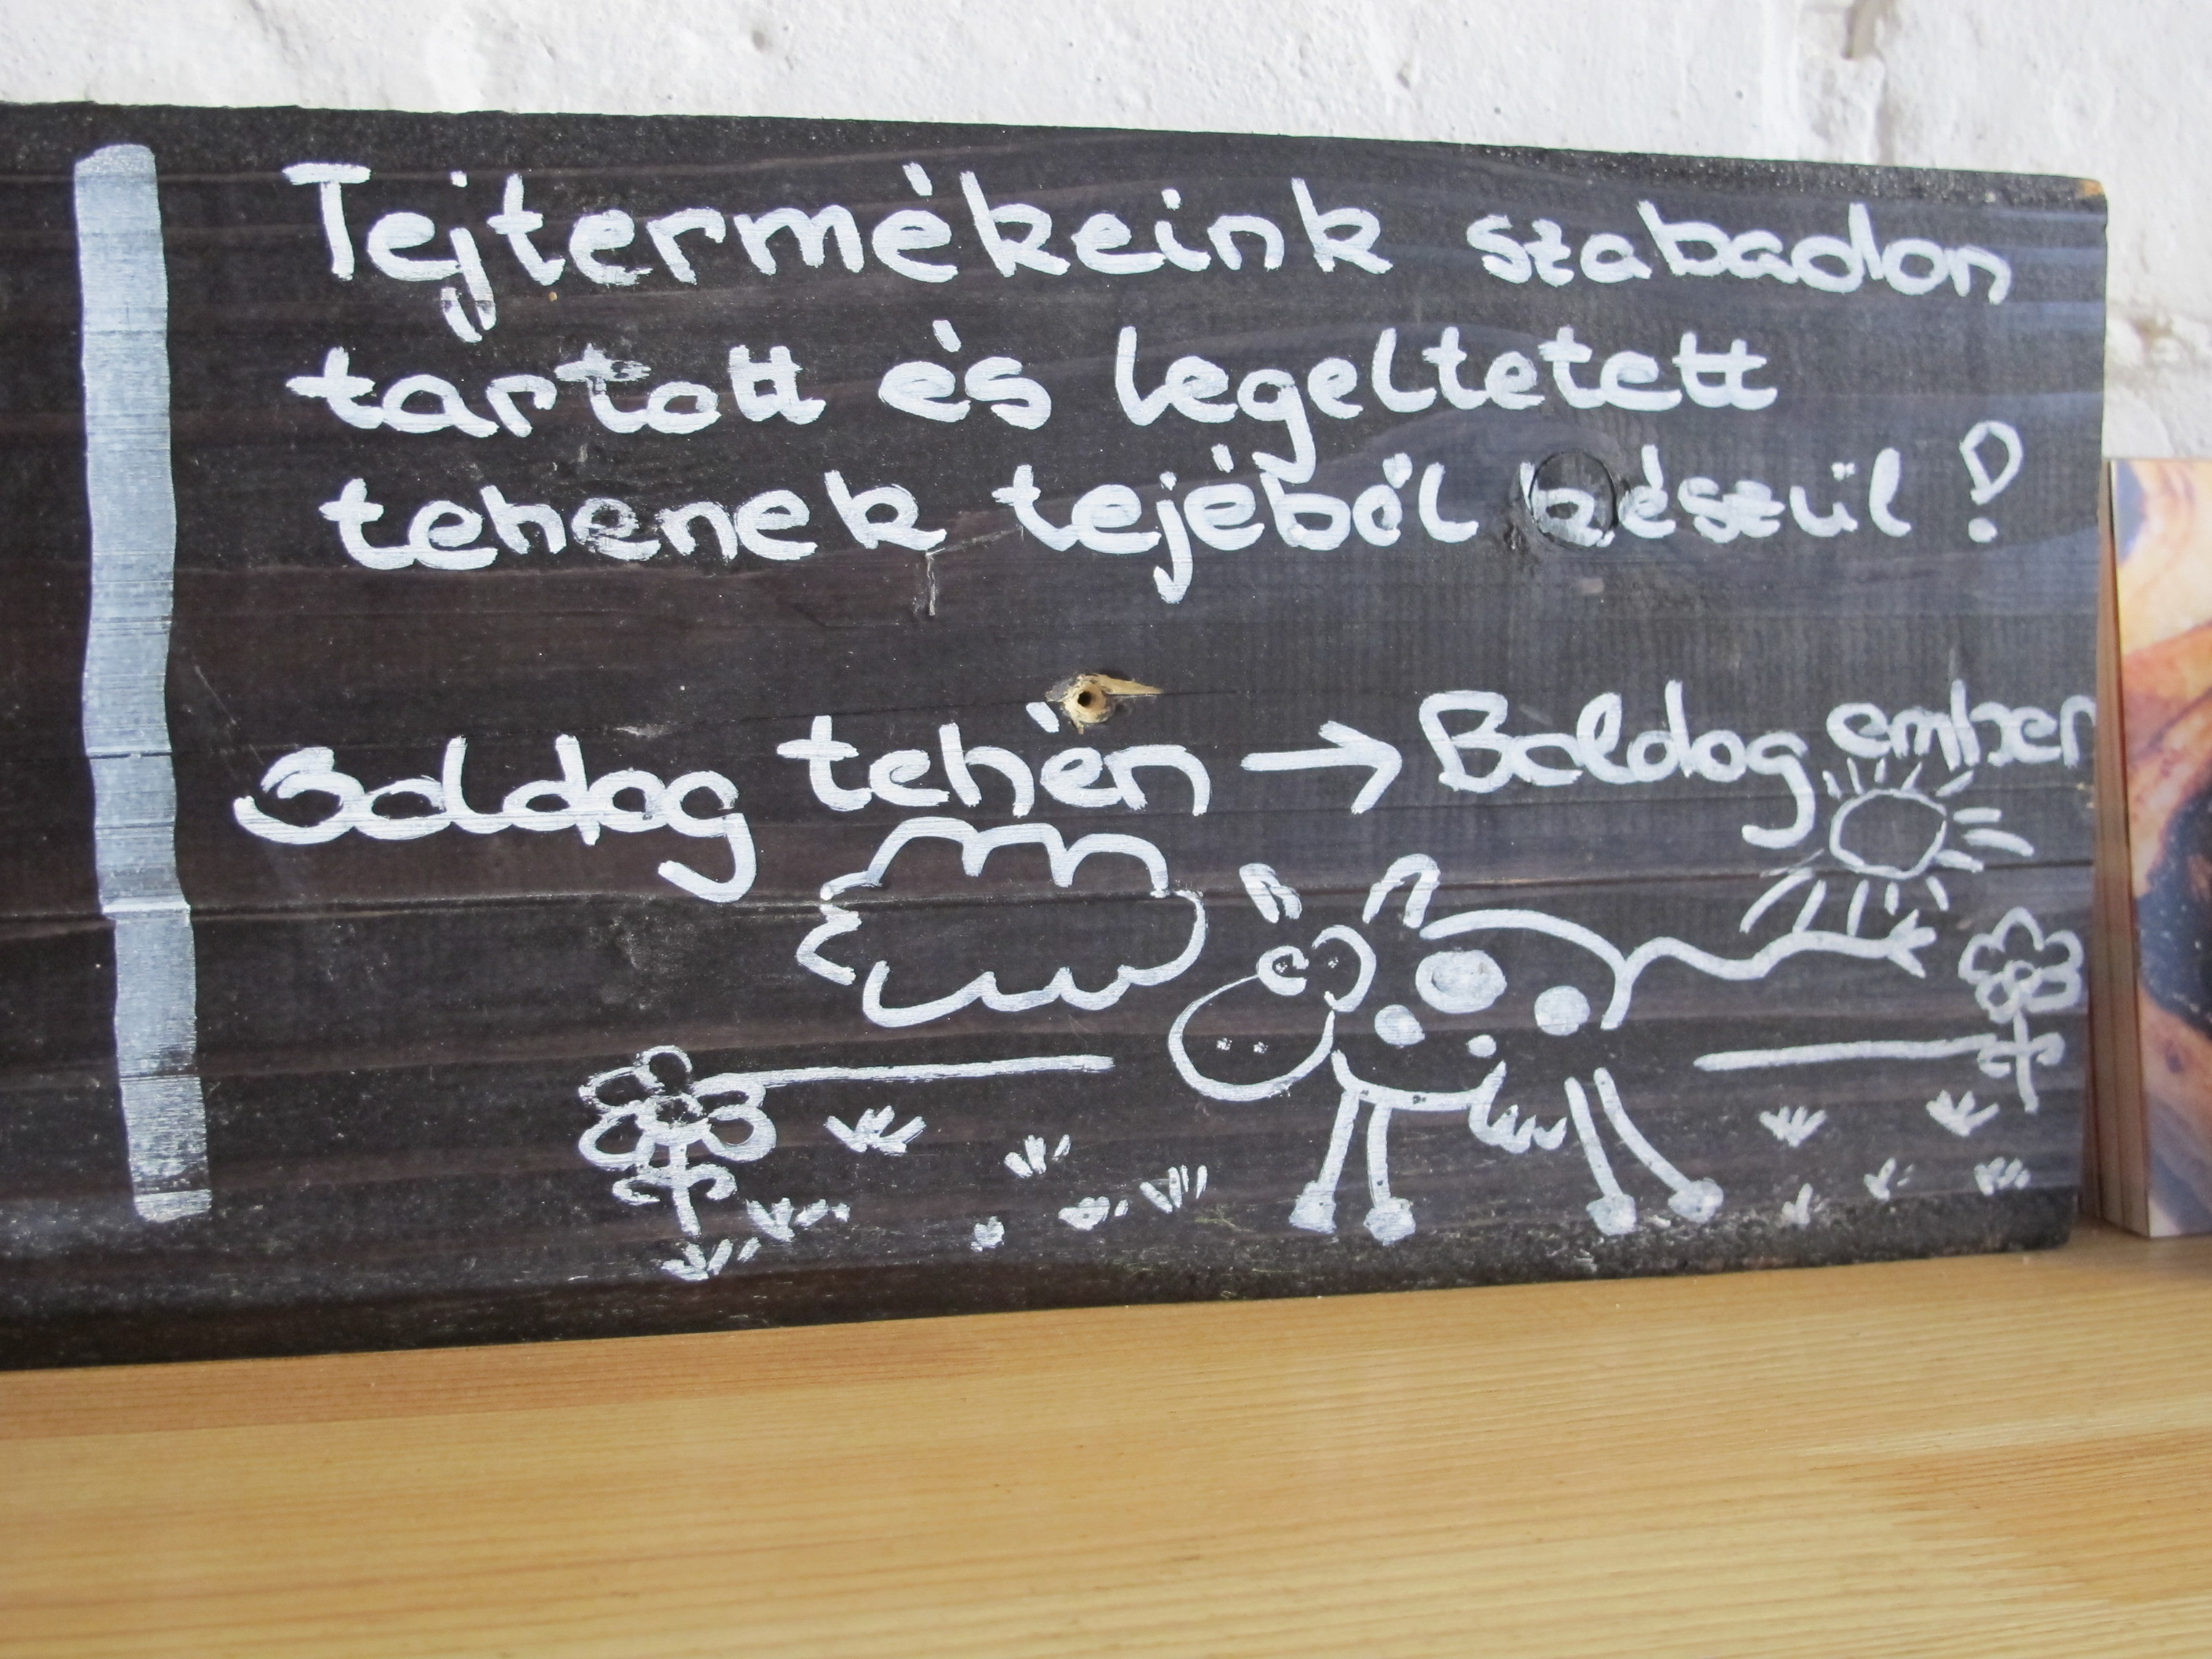 Tejtermékeink szabadon
tartott és legeltetett
tehenek tejéből készül!
Boldog tehén → Boldog ember